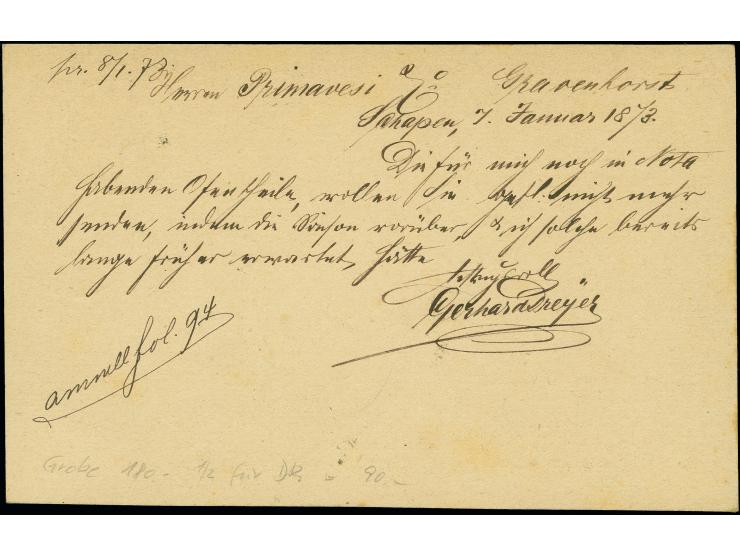 pr. 8/1. 73
Herren Primavesi & Co Gravenhorst
Schapen, 7. Januar 1873.
Die für mich noch in Nota
habenden Ofentheile, wollen Sie gefl. nicht mehr
senden, indem die Saison vorüber, & ich solche bereits
lange früher erwartet hatte
Gerhard Dreyer
annull fol. 94
Grobe 180.- 1/2 für = 90.-